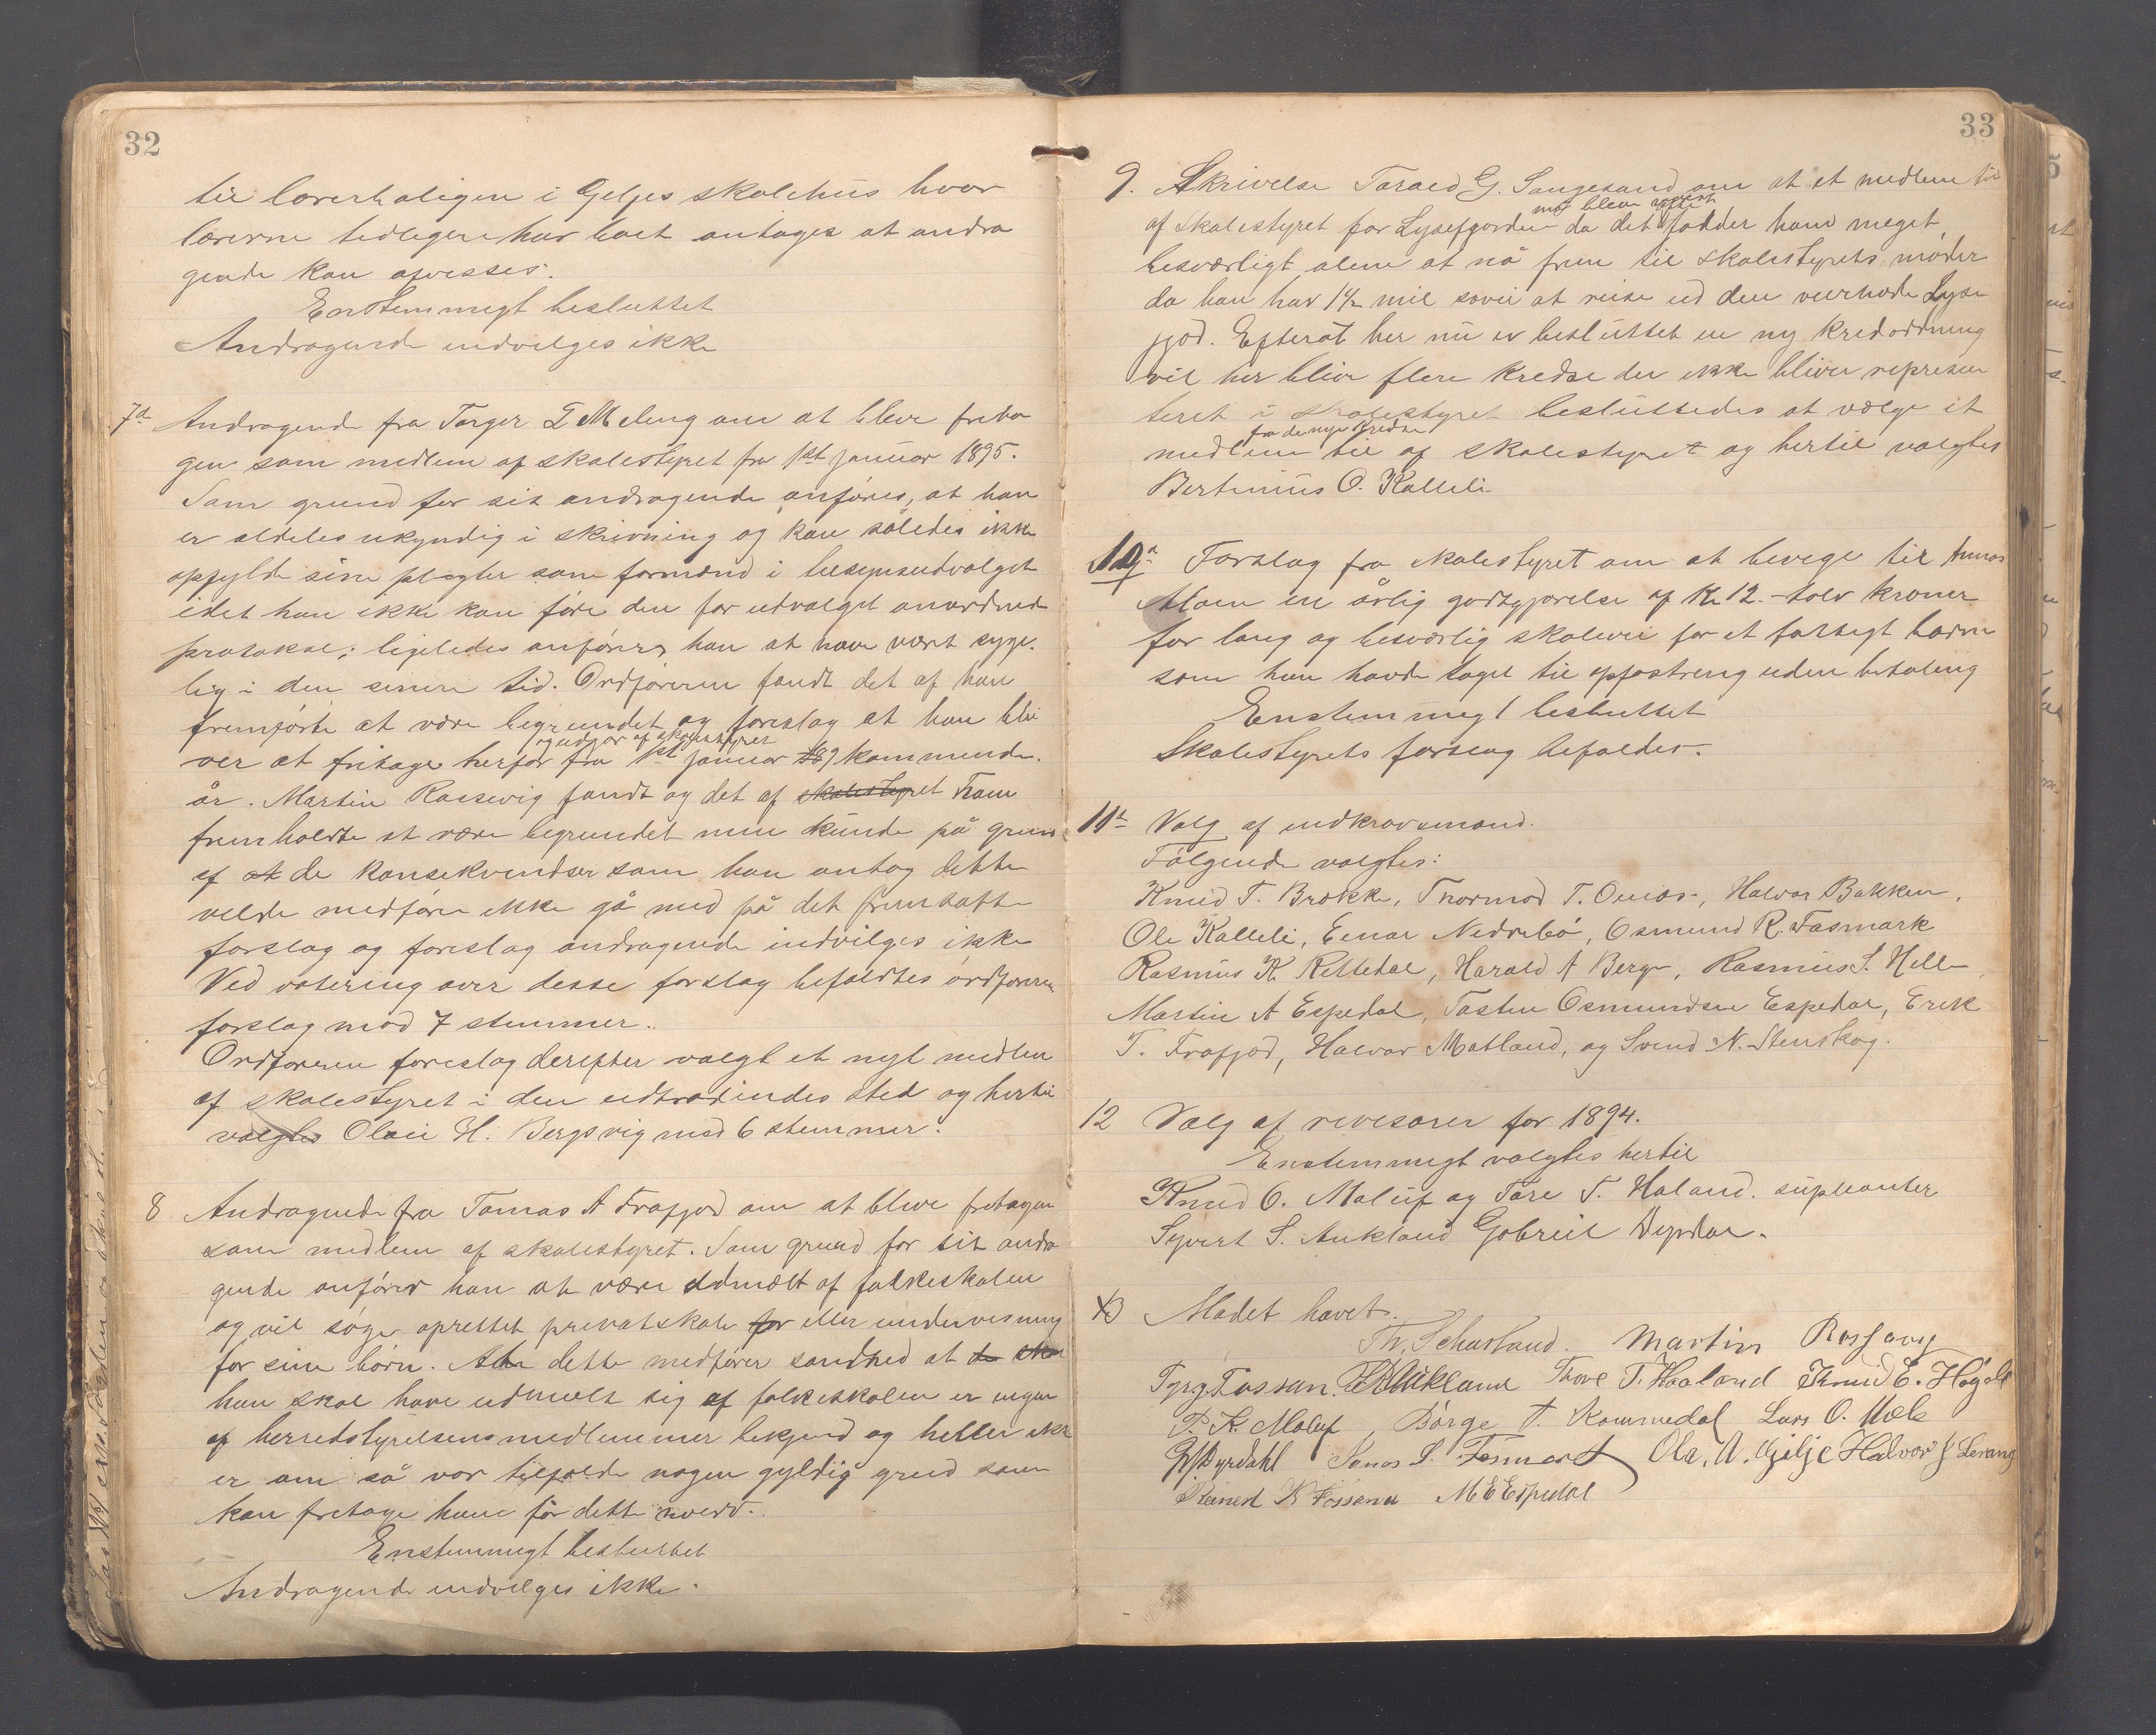 32
til lærerboligen i Geljes skolehus hvor
lærerne tedligere har boet antages at andra
gende kan afvisses.
Enstemmegt besluttet
Andragende indvilges ikke
7d Andragende fra Torger T Meling om at blive frita
gen som medlem af skolestyret fra 1st januar 1895.
Som grund for sit andragende anføres, at han
er aldeles ukyndig i skrivning og kan således ikke
opfylde sine plegter som formand i tilsynsudvalget
idet han ikke kan føre den for udvalget anordnede
protokol; ligeledes anfører han at have vært syge-
lig i den senere tid. Ordføreren fandt det af han
fremførte at være begrundet og foreslog at han bli
ver at fritage herfor fra 1st januar kommende
år. Martin Rossevig fandt og det af skolestyret ham
fremholdte at være begrundet men kunde på grund
af at de konsekvendser som han antog dette
vilde medføre ikke gå med på det fremsatte
forslag og foreslog andragende indvilges ikke
Ved votering over desse forslag befoldtes ordføreren
forslag mod 7 stemmer.
Ordføreren foreslog derefter valgt et nyt medlem
af skolestyret i den udtrædindes sted og hertil
valgtes Olaii H. Bergsvig med 6 stemmer.
8 Andragende fra Tomas A Frafjord om at blive fretagen
som medlem af skolestyret. Som grund for sit andra
gende anfører han at være udmeldt af folkeskolen
og vil søge oprettet privatskole for eller undervisning
for sine børn. At dette medfører sandhed at
han skal have udmeldt sig af folkeskolen er ingen
af herredstyrelsens medlemmer bekjend og heller ikke
er om så var tilfælde nogen gyldig grund som
kan fretage ham for dette hverv.
Enstemmegt besluttet
Andragende indvilges ikke.
33
9. Skrivelse Tarald G. Sangesand om at et medlem til
må bleve valgt
af skolestyret for Lysefjorden da det falder ham meget
besværligt alene at nå frem til skolestyrets møder
da han har 1½ mil sovei at reise ud den veirhårde Lyse
fjord. Efterat her nu er besluttet en ny kredsordning
vil her blive flere kredse der ikke bliver represen
teret i skolestyret besluttedes at vælge et
fra de nye kredse
medlem til af skolestyret og hertil valgtes
Bertinius O. Kalleli
10a Forslag fra skolestyret om at bevege til
en årlig godtgjørelse af Kr 12. tolv kroner
for lang og besværlig skolevei for et fattigt barn
som han havde taget til opfostreng uden betaling
Enstemmegt besluttet
Skolestyrets forslag befoldes.
11d Valg af indkravsmænd.
Følgende valgtes:
Knud T. Brokke, Thormod T. Oueas., Halvor Bakken,
Ole Kalleli, Einar Nedrebø, Osmund R. Fasmark
Rasmus K. Rettedal, Harald A Berge, Rasmus S. Helle,
Martin A Espedal, Tosten Osmundsen Espedal, Erik
T. Frafjord, Halvar Matland, og Svend N. Stenskog.
12 Valg af revisorer for 1894.
Enstemmegt valgtes hertil
Knud O. Maluf og Tore T. Haland. supleanter
Syvert S. Aukland Gabriel Dyrdal.
13 Mødet hævet.
Martin Rossavig
Aukland Thore T. Haaland Knud E. Høgeli
P. K. Maluf Børge T. Kommedal Lars O. Mæle
G Dyrdahl Ola, A. Gilje Halvor J Levang
Reinert K Fossand M E Espedal